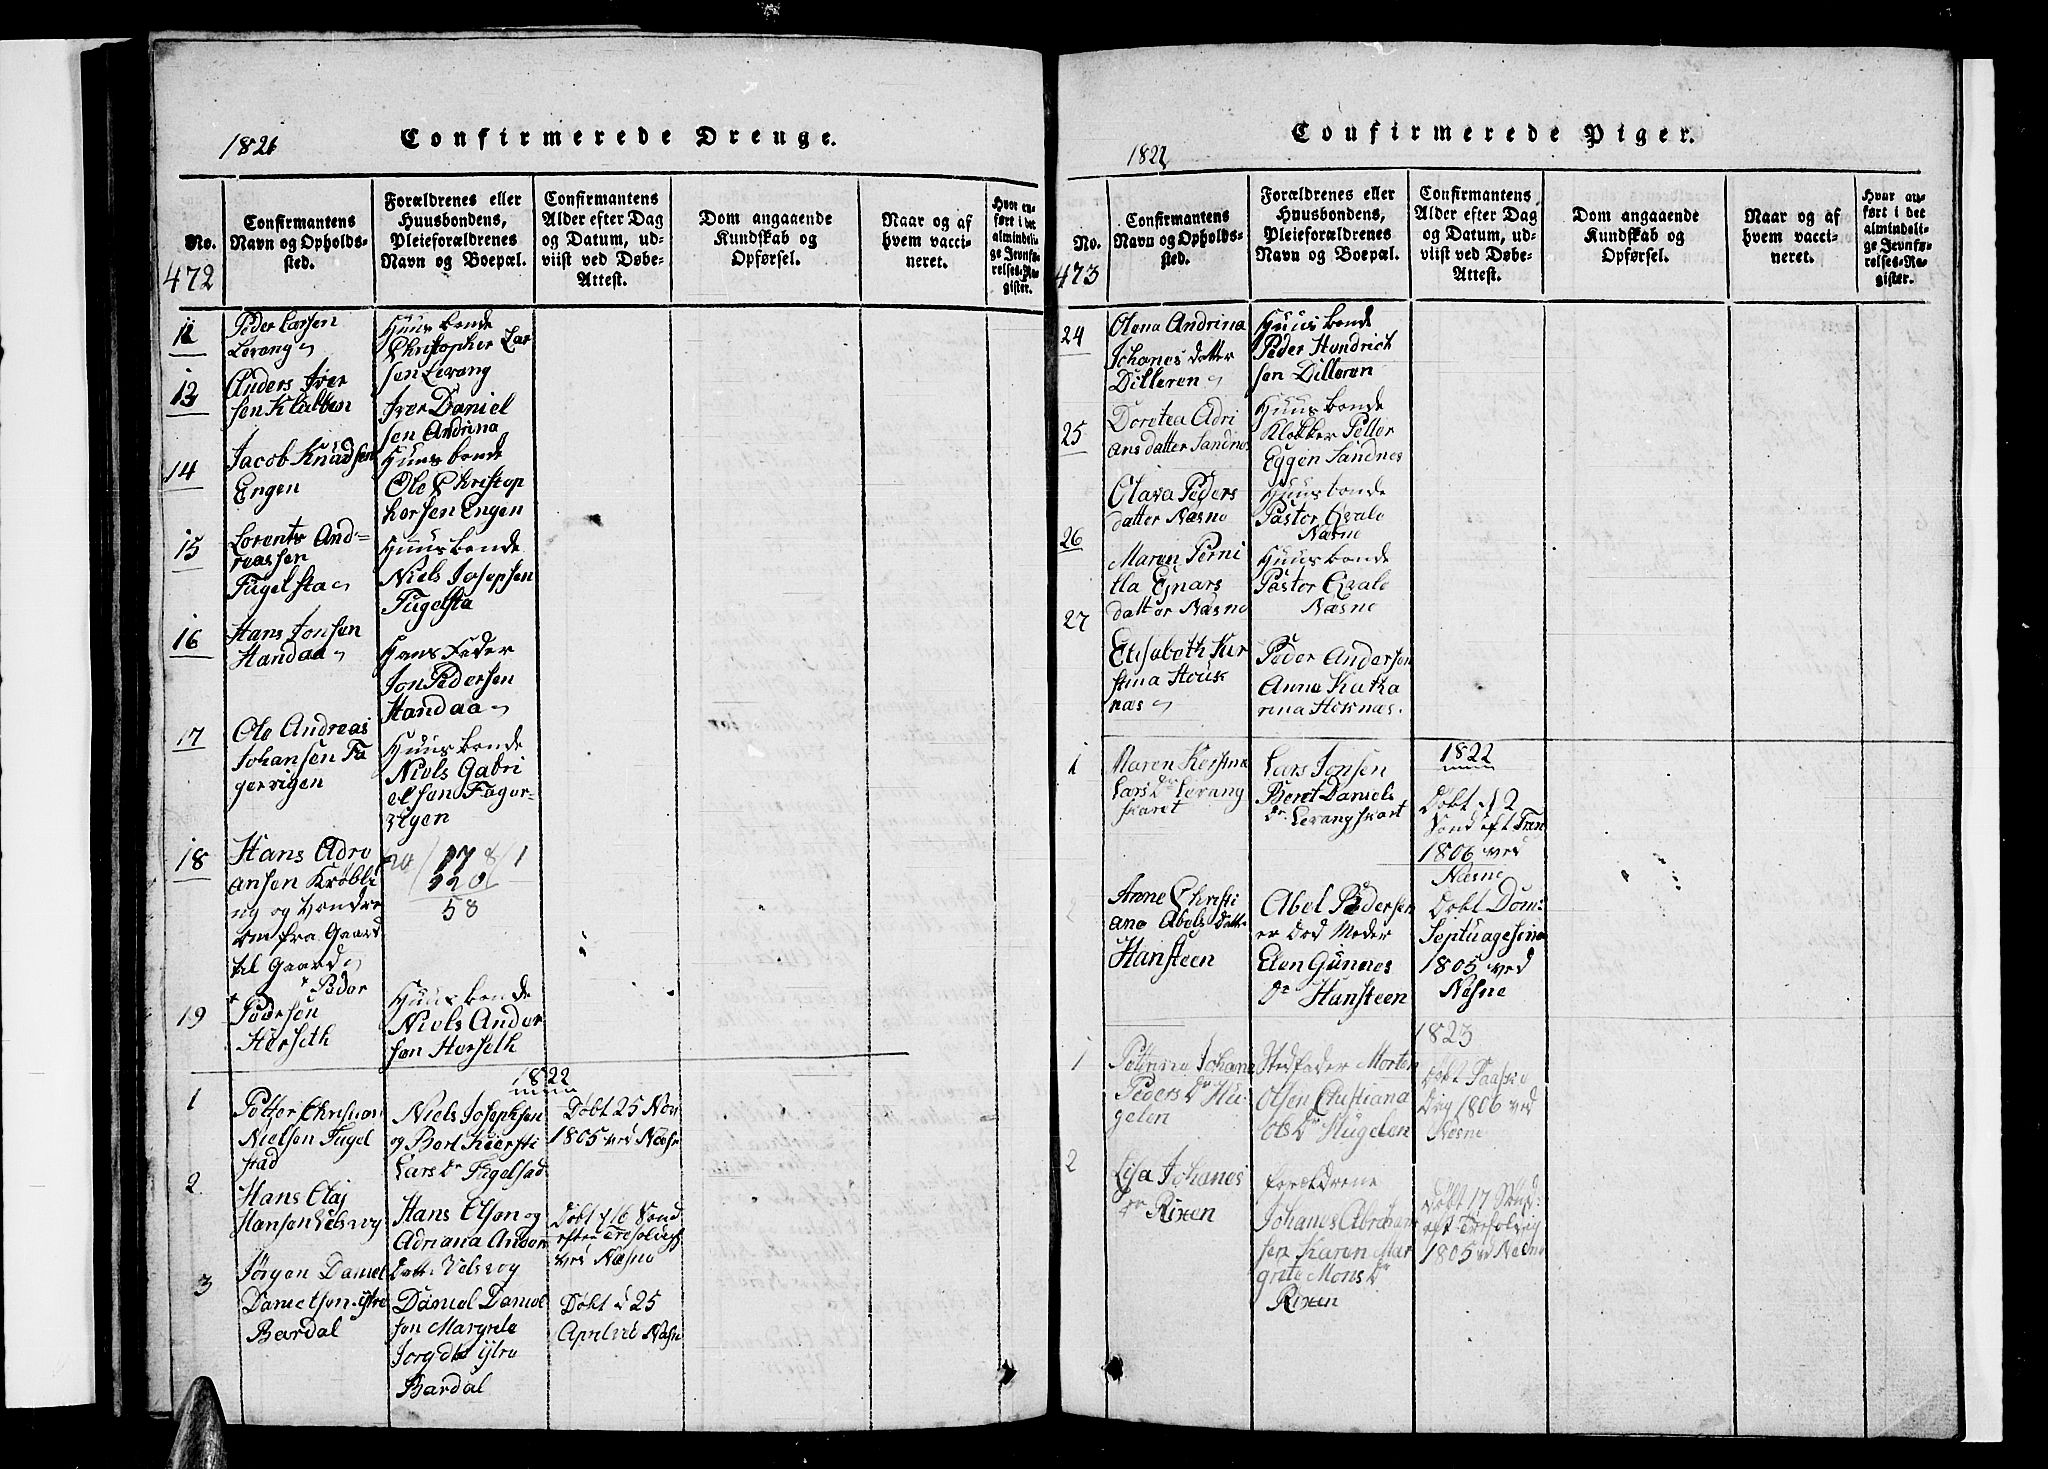 1821
Confirmerede Drenge.
No.
472
Confirmantens
Navn og Opholds-
sted.
Forældrenes eller
Huusbondens,
Pleieforældrenes
Navn og Boepæl.
Confirmantens
Alder efter Dag
og Datum, ud-
viist ved Døbe-
Attest.
Dom angaaende
Kundskab og
Opførsel.
Naar og af
hvem vacci-
neret.
Hvor an-
ført i det
almindeli-
ge Jevnfø-
relses-Re-
gister.
12
Peder Larsen
Levang
Huusbonde
Christopher Lar
sen Levang
13
Anders Iver
sen Klubben
Iver Daniel
sen Andrina
14
Jacob Knudsen
Engen
Huusbonde
Ole Christop
hersen Engen
15
Lorents And-
reassen
Fugelsta
Huusbonde
Niels Josepsen
Fugelsta
16
Hans Jonsen
Handaa
Hans Fader
Jon Pedersen
Handaa
17
Ole Andreas
Johansen Fa
gervigen
Huusbonde
Niels Gabri
elsen Fager-
vigen
18
Hans Adri
ansen Krøbli
ng og
om fra Gaard
til Gaard
20/178/1
120
58
19
Peder
Pedersen
Herseth
Huusbonde
Niels Ander
sen Herseth
1822
1
Petter
Nielsen Fugel
stad
Niels Josephsen
og Beret Kiersti
Lars Dr Fugelstad
Døbt 25 Nov
1805 ved Næsne
2
Hans Olaj
Hansen
Hans Olsen og
Adriana Ander
Datt.
Døbt d 16 Sønd
efter Trefoldigh
ved Næsne
3
Jørgen Daniel
Danielsen ytre
Bardal
Daniel Daniel
sen Margrete
ytre
Bardal
Døbt d 25
April ved Næsne
1821
Confirmerede Piger.
No.
473
Confirmantens
Navn og Opholds-
sted.
Forældrenes eller
Huusbondens,
Pleieforældrenes
Navn og Boepæl.
Confirmantens
Alder efter Dag
og Datum, ud-
viist ved Døbe-
Attest.
Dom angaaende
Kundskab og
Opførsel.
Naar og af
hvem vacci-
neret.
Hvor an-
ført i det
almindeli-
ge Jevnfø-
relses-Re-
gister.
24
Olena Andrina
Johanes datter
Dilleren
Huusbonde
Peder Hendrich
sen Dilleren
25
Dorotea Adri
ansdatter Sandnes
Huusbonde
Klokker Petter
Eggen Sandnes
26
Olava Peders
datter Næsne
Huusbonde
Pastor Qvale
Næsne
27
Maren Perni
lla Ejnars
datter Næsne
Huusbonde
Pastor Qvale
Næsne
Elisabeth Kir
stina
næs
Peder Andersen
Anne Katha
rina
1822
1
Maren Kerstina
Lars Dr Levang
skaret
Lars Jonsen
Beret Daniels
Dr Levangskaret
Døbt d 2
Sønd eft Tren
1806 ved
Næsne
2
Anne Christi
ana Abels Datt.
Hansteen
Abel Pedersen
er død Moder
Elen Gunnes
Dr Hansteen
Døbt Dom:
Septuagesima
1805 ved
Næsne
1823
1
Petrina Johana
Peders Dr Hu-
gelen
Stedfader Morten
Olsen Christiana
Ols Dr Hugelen
Døbt Paaske
Dag 1806 ved
Næsne
2
Lisa Johanes
Dr Rixen
Forældrene
Johanes Abraham
sen Karen Mar
grete Mons Dr
Rixen
Døbt 17 Sønd:
eft Trefoldig
1805 ved Næsne